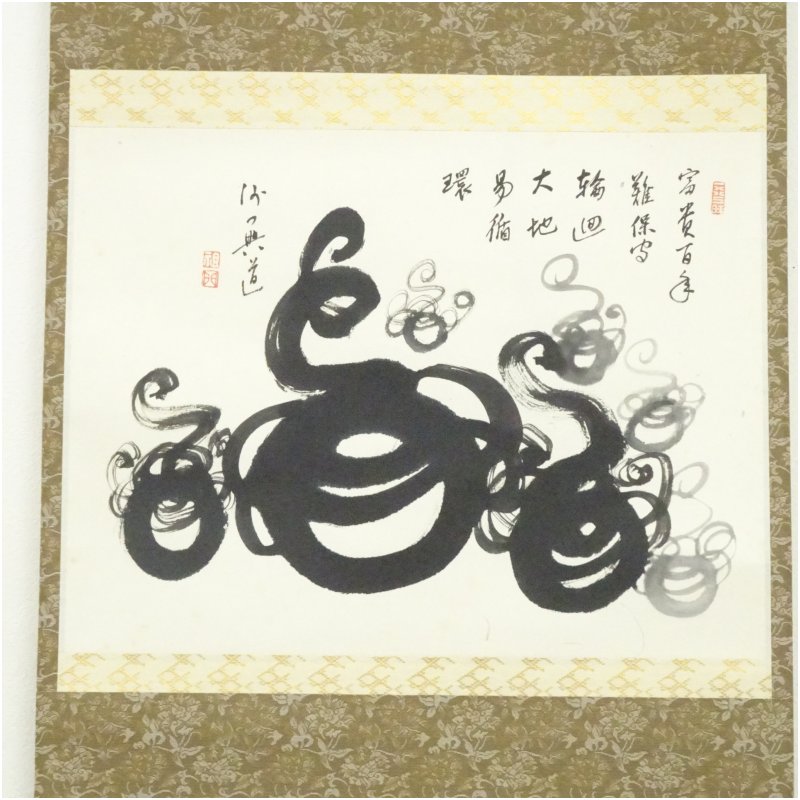 富貴百年
難保守
輪迴
大地
易循
環
典道